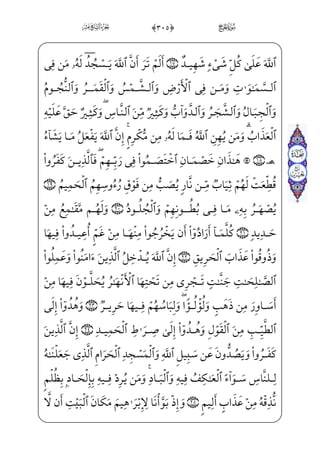 ٱللَّهَ عَلَىٰ كُلِّ شَىْءٍ شَهِيدٌ ۝ أَلَمْ تَرَ أَنَّ ٱللَّهَ يَسْجُدُ لَهُۥ مَن فِى
ٱلسَّمَٰوَٰتِ وَمَن فِى ٱلْأَرْضِ وَٱلشَّمْسُ وَٱلْقَمَرُ وَٱلنُّجُومُ
وَٱلْجِبَالُ وَٱلشَّجَرُ وَٱلدَّوَآبُّ وَكَثِيرٌ مِّنَ ٱلنَّاسِ ۖ وَكَثِيرٌ حَقَّ عَلَيْهِ
ٱلْعَذَابُ ۗ وَمَن يُهِنِ ٱللَّهُ فَمَا لَهُۥ مِن مُّكْرِمٍ ۚ إِنَّ ٱللَّهَ يَفْعَلُ مَا يَشَآءُ
۝ هَٰذَانِ خَصْمَانِ ٱخْتَصَمُوا۟ فِى رَبِّهِمْ ۖ فَٱلَّذِينَ كَفَرُوا۟
قُطِّعَتْ لَهُمْ ثِيَابٌ مِّن نَّارٍ يُصَبُّ مِن فَوْقِ رُءُوسِهِمُ ٱلْحَمِيمُ
۝ يُصْهَرُ بِهِۦ مَا فِى بُطُونِهِمْ وَٱلْجُلُودُ ۝ وَلَهُم مَّقَٰمِعُ مِنْ
حَدِيدٍ ۝ كُلَّمَآ أَرَادُوٓا۟ أَن يَخْرُجُوا۟ مِنْهَا مِنْ غَمٍّ أُعِيدُوا۟ فِيهَا
وَذُوقُوا۟ عَذَابَ ٱلْحَرِيقِ ۝ إِنَّ ٱللَّهَ يُدْخِلُ ٱلَّذِينَ ءَامَنُوا۟ وَعَمِلُوا۟
ٱلصَّٰلِحَٰتِ جَنَّٰتٍ تَجْرِى مِن تَحْتِهَا ٱلْأَنْهَٰرُ يُحَلَّوْنَ فِيهَا مِنْ
أَسَاوِرَ مِن ذَهَبٍ وَلُؤْلُؤًا ۖ وَلِبَاسُهُمْ فِيهَا حَرِيرٌ ۝ وَهُدُوٓا۟ إِلَى
ٱلطَّيِّبِ مِنَ ٱلْقَوْلِ وَهُدُوٓا۟ إِلَىٰ صِرَٰطِ ٱلْحَمِيدِ ۝ إِنَّ ٱلَّذِينَ
كَفَرُوا۟ وَيَصُدُّونَ عَن سَبِيلِ ٱللَّهِ وَٱلْمَسْجِدِ ٱلْحَرَامِ ٱلَّذِى جَعَلْنَٰهُ
لِلنَّاسِ سَوَآءً ٱلْعَٰكِفُ فِيهِ وَٱلْبَادِ ۚ وَمَن يُرِدْ فِيهِ بِإِلْحَادٍۭ بِظُلْمٍ
نُّذِقْهُ مِنْ عَذَابٍ أَلِيمٍ ۝ وَإِذْ بَوَّأْنَا لِإِبْرَٰهِيمَ مَكَانَ ٱلْبَيْتِ أَن لَّا